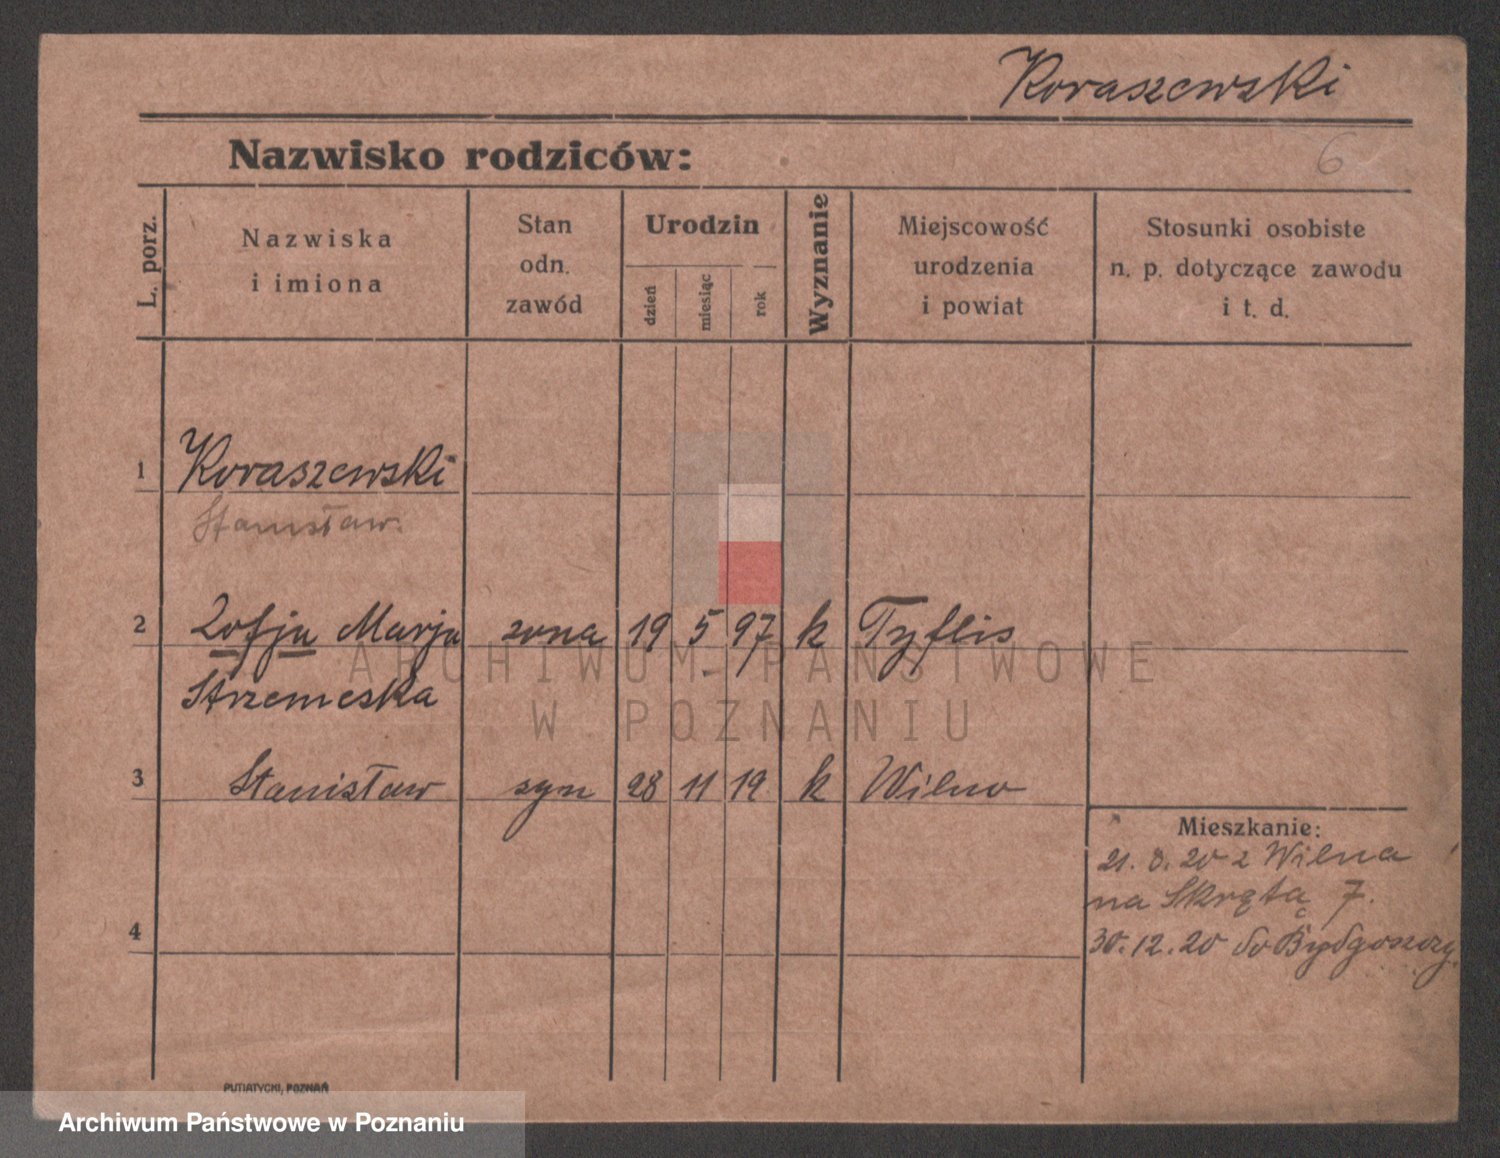 Koraszewski
Nazwisko rodziców:
6
L. porz.
Nazwiska
i imiona
Stan
odn.
zawód
Urodzin
dzień
miesiąc
rok
Wyznanie
Miejscowość
urodzenia
i powiat
Stosunki osobiste
n. p. dotyczące zawodu
i t. d.
1 Koraszewski
Stanisław.
2 Zofja Marja żona 19 5 97 k Tyflis
Strzemeska
3 Stanisław syn 28 11 19 k Wilno
4
Mieszkanie:
21. 8. 20 z Wilna
na Skrętą 7.
30. 12. 20 do Bydgoszczy.
ARCHIWUM PAŃSTWOWE
W POZNANIU
PUTIATYCKI, POZNAŃ
Archiwum Państwowe w Poznaniu